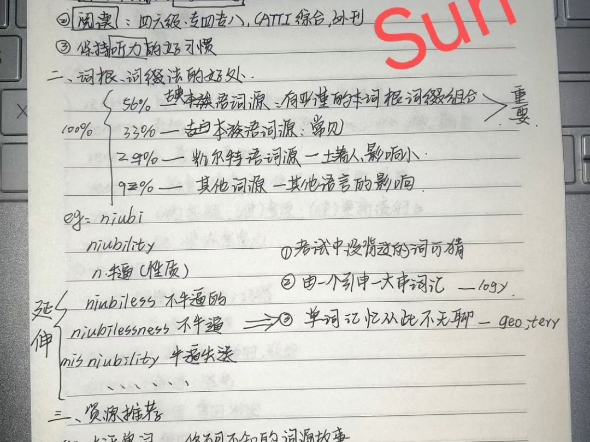 ② 阅读：四六级、专四专八，CATTI综合，外刊
Sun
③ 保持听力的好习惯
二、词根、词缀法的好处.
100%
56% 本族语词源：有严谨的 词根词缀组合
重要
33% — 本族语词源：常见
2% — 凯尔特语词源 — 土著人，影响小
9% — 其他词源 — 其他语言的影响.
eg= niubi
niubility
n.牛逼(性质)
延伸
niubiless 不牛逼的
niubilessness 不牛逼
mis niubility 牛逼失误
......
① 考试中没背过的词可猜
② 由一个引申一大串词汇 —logy.
③ 单词记忆从此不无聊 — geo,tery
三、资源推荐
你不可不知的词源故事